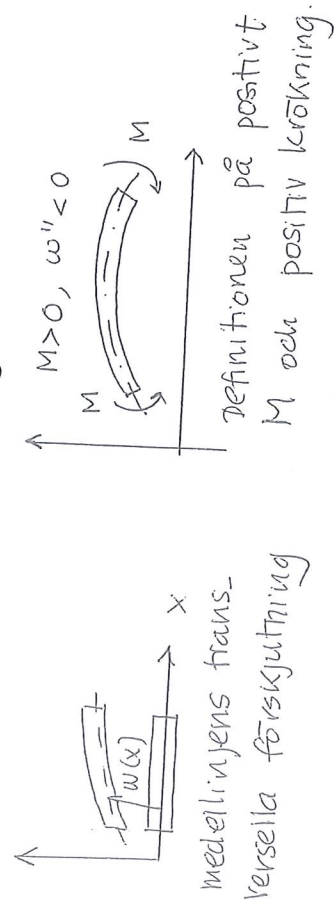 w(x)
x
medellinjens trans-
versella förskjutning
M>0, w''<0
M
M
Definitionen på positivt
M och positiv krökning.